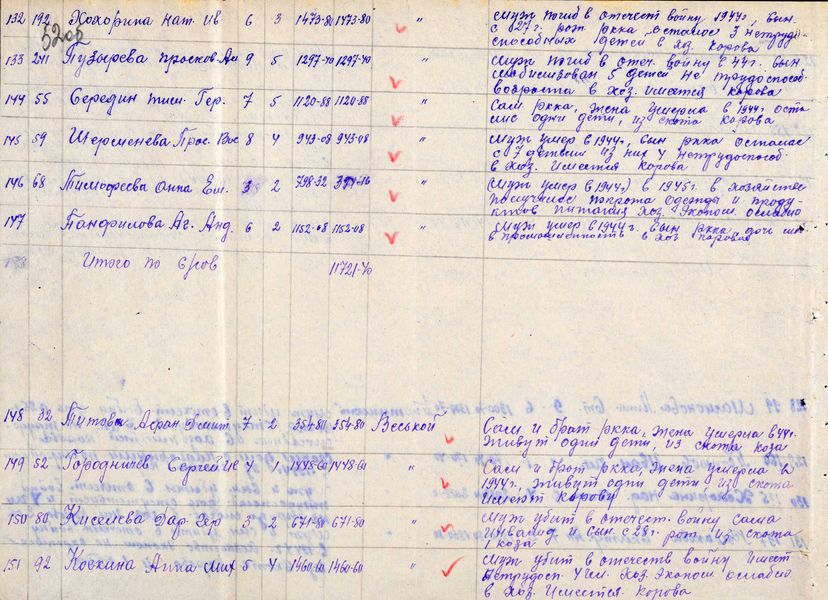 132 192 Хохорина Нат. Ив 6 3 1473-80 1473-80 " муж погиб в отечест войну 1944г, сын
с 27г. рот ркка, осталось 3 нетрудо-
способных детей в хоз. корова
5205
133 241 Пузырева Просков. Ал 9 5 1297-40 1297-40 " муж погиб в отеч. войну в 44г. сын
мобилизован 5 детей не трудоспособ
возроста в хоз. имется корова
144 55 Середин Тим. Гер. 7 5 1120-88 1120-88 " Сам ркка, жена умерла в 1944г оста
лис одни дети, из скота корова
145 59 Шерменева Прос. Вас 8 4 943-08 943-08 " муж умер в 1944г., сын ркка осталас
с 7 детьми из них 4 нетрудоспособ.
в хоз. имется корова
146 68 Тимофеева Анна Ем. 3 2 798-32 " (муж умер в 1944г) в 1945г. в хозяйстве
получилос покрота одежды и проду-
ктов питания хоз. эконом. ослабло
147 Панфилова Аг. Анд. 6 2 1152-08 1152-08 " муж умер в 1944г. сын ркка, дочь
в промышленность в хоз корова
Итого по с/сов 11721-40
148 32 Титова Асран Дмит. 7 2 354-80 354-80 Веськой Сам и брат ркка, жена умерла в 44г.
живут одни дети, из скота коза
149 52 Городничев Сергей Ив 4 1 1448-60 1448-60 " Сам и брат ркка, жена умерла в
1944г. живут одни дети из скота
имеют корову
150 80 Киселева Дар. Ер 3 2 671-80 671-80 " муж убит в отечест. войну сама
инвалид и сын с 28г. рот. из скота
1 коза
151 92 Коскина Анна Мих 5 4 1460-60 1460-60 " муж убит в отечеств войну имеет
нетрудосп. 4 чел. хоз. эконом ослабло
в хоз. имеется корова